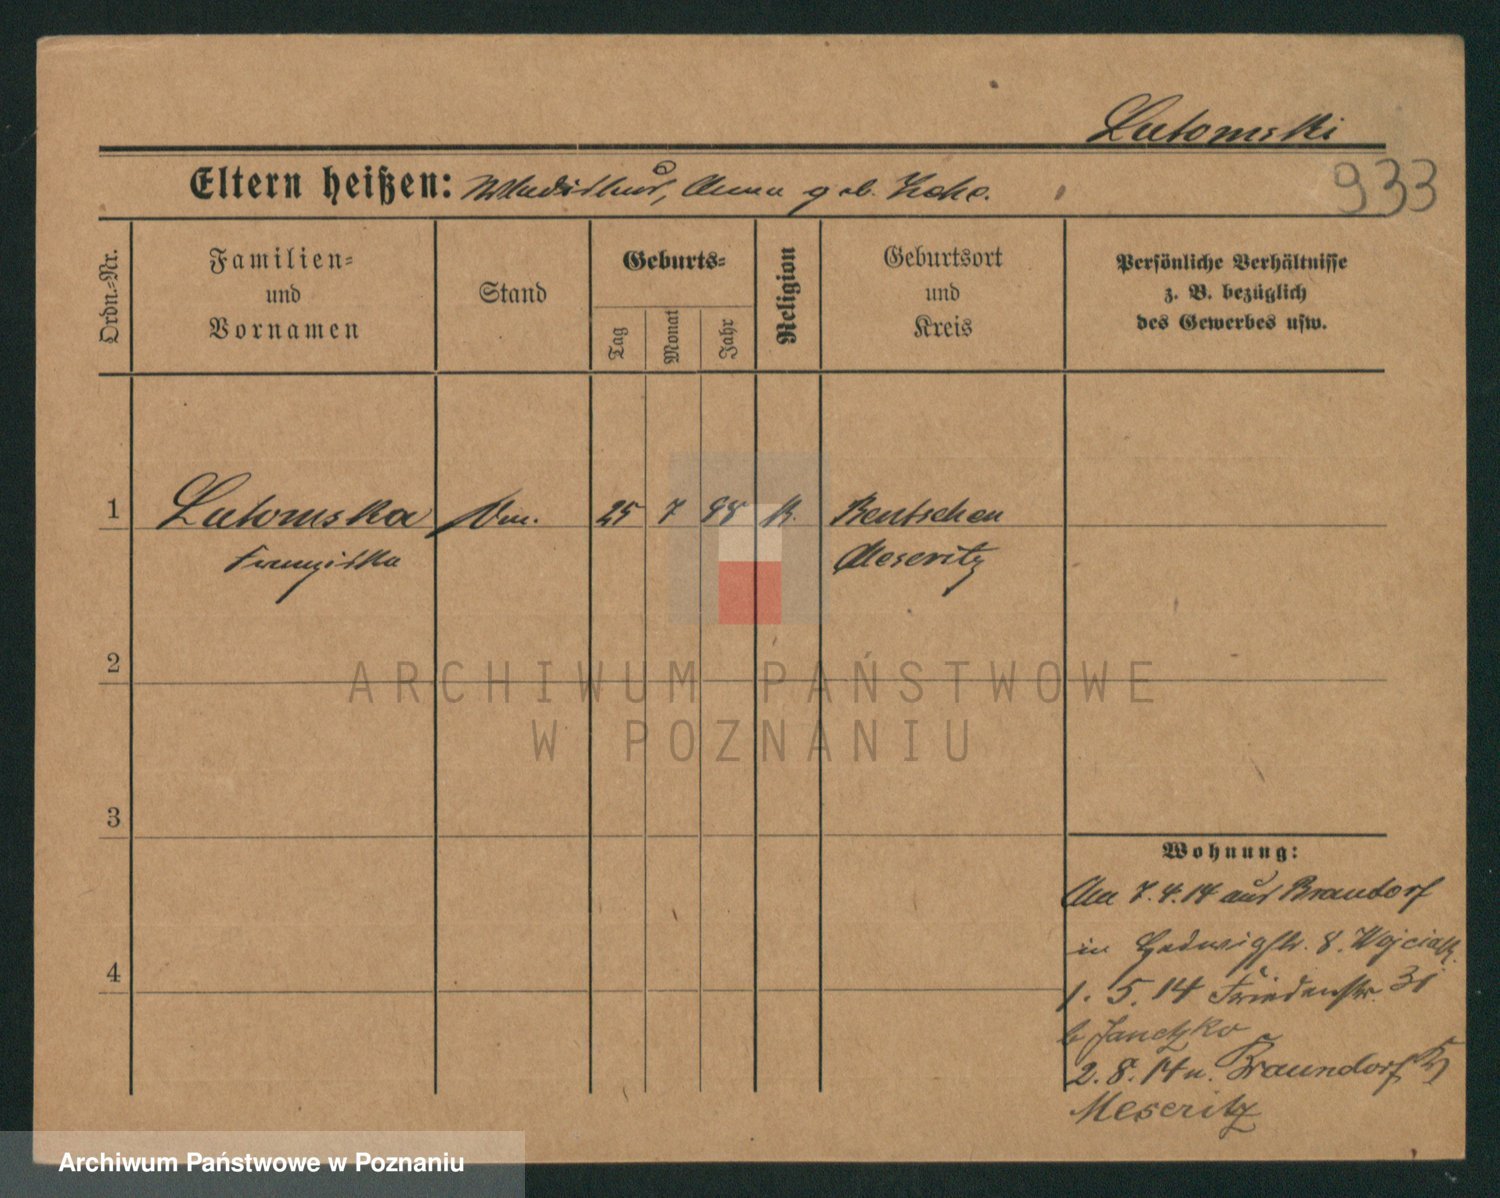 Lutomski
Eltern heißen: Wladislaus, Anna geb.
933
Ordn.-Nr.
Familien-
und
Vornamen
Stand
Geburts-
Tag
Monat
Jahr
Religion
Geburtsort
und
Kreis
Persönliche Verhältnisse
z. B. bezüglich
des Gewerbes usw.
1 Lutomska 25 7 98 K. Bentschen
Franziska Meseritz
2
3
4
Wohnung:
Am 7.4.14 aus Braudorf
in Hedwigstr. 8.
1. 5. 14 Friedenstr. 31
b Janetzko
2. 8. 14 n. Braundorf
Meseritz
ARCHIWUM PAŃSTWOWE
W POZNANIU
Archiwum Państwowe w Poznaniu